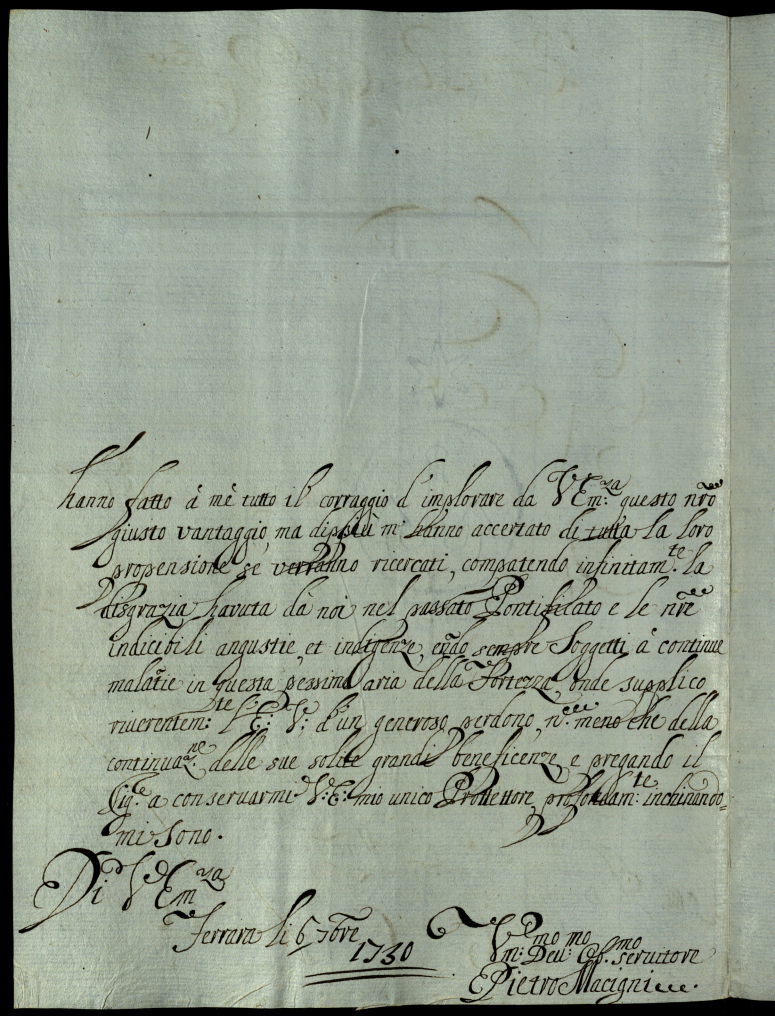 hanno fatto à mè tutto il corraggio d'implorare da V Em:za questo nrõ
giusto vantaggio, ma dippiù m'hanno accertato di tutta la loro
propensione se verranno ricercati, compatendo infinitam:te la
disgrazia havuta dà noi nel passato Pontifilato e le nrẽ
indicibili angustie, et indigenze, endo sempre Soggetti à continue
malatie in questa pessima aria della Fortezza, onde supplico
riverentem:te l'E: V: d'un generoso perdono, n:e meno che della
continuaz:ne delle sue solite grandi beneficenze, e pregando il
Sig:e a conservarmi V: E: mio unico Prottettore, profondam:te inchinando=
mi sono.
Di V Em:za
Ferrara li 6 7bre
1730
Vm:mo Dev:mo Obb:mo servitore
Pietro Macigni